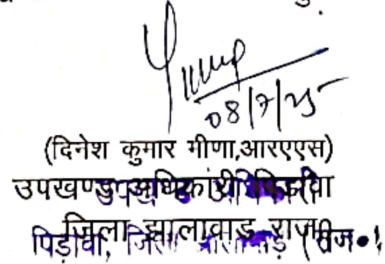 08/7/25
(दिनेश कुमार मीणा,आरएएस)
उपखण्ड अधिकारी पिड़ावा
जिला झालावाड़ राज०
पिड़ावा, जिला झालावाड़ (राज०)